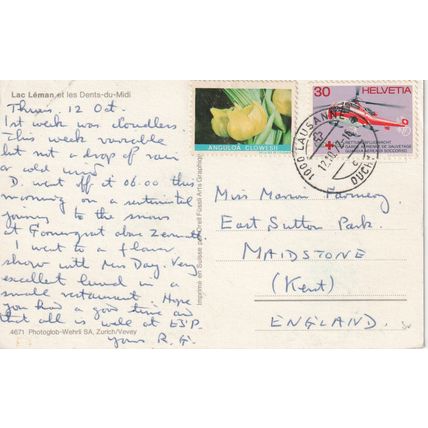 Lac Léman et les Dents-du-Midi
Thurs. 12 Oct.
1st week was cloudless.
This week variable
but not a drop of rain
or cold wind
D. went off at 06.00 this
morning on a sentimental
journey to the snows
at Gornergrat above Zermatt.
I went to a flower
show with Mrs Day. Very
excellent lunch in a
small restaurant. Hope
you had a good time and
that all is well at E.S.P.
yours R.G.
4671 Photoglob-Wehrli SA, Zurich/Vevey
Imprimé en Suisse par Orell Füssli Arts Graphiques
ANGULOA CLOWESII
30 HELVETIA
1000 LAUSANNE
12.10.
OUCHY
Miss Marion
East Sutton Park.
MAIDSTONE
(Kent)
ENGLAND.